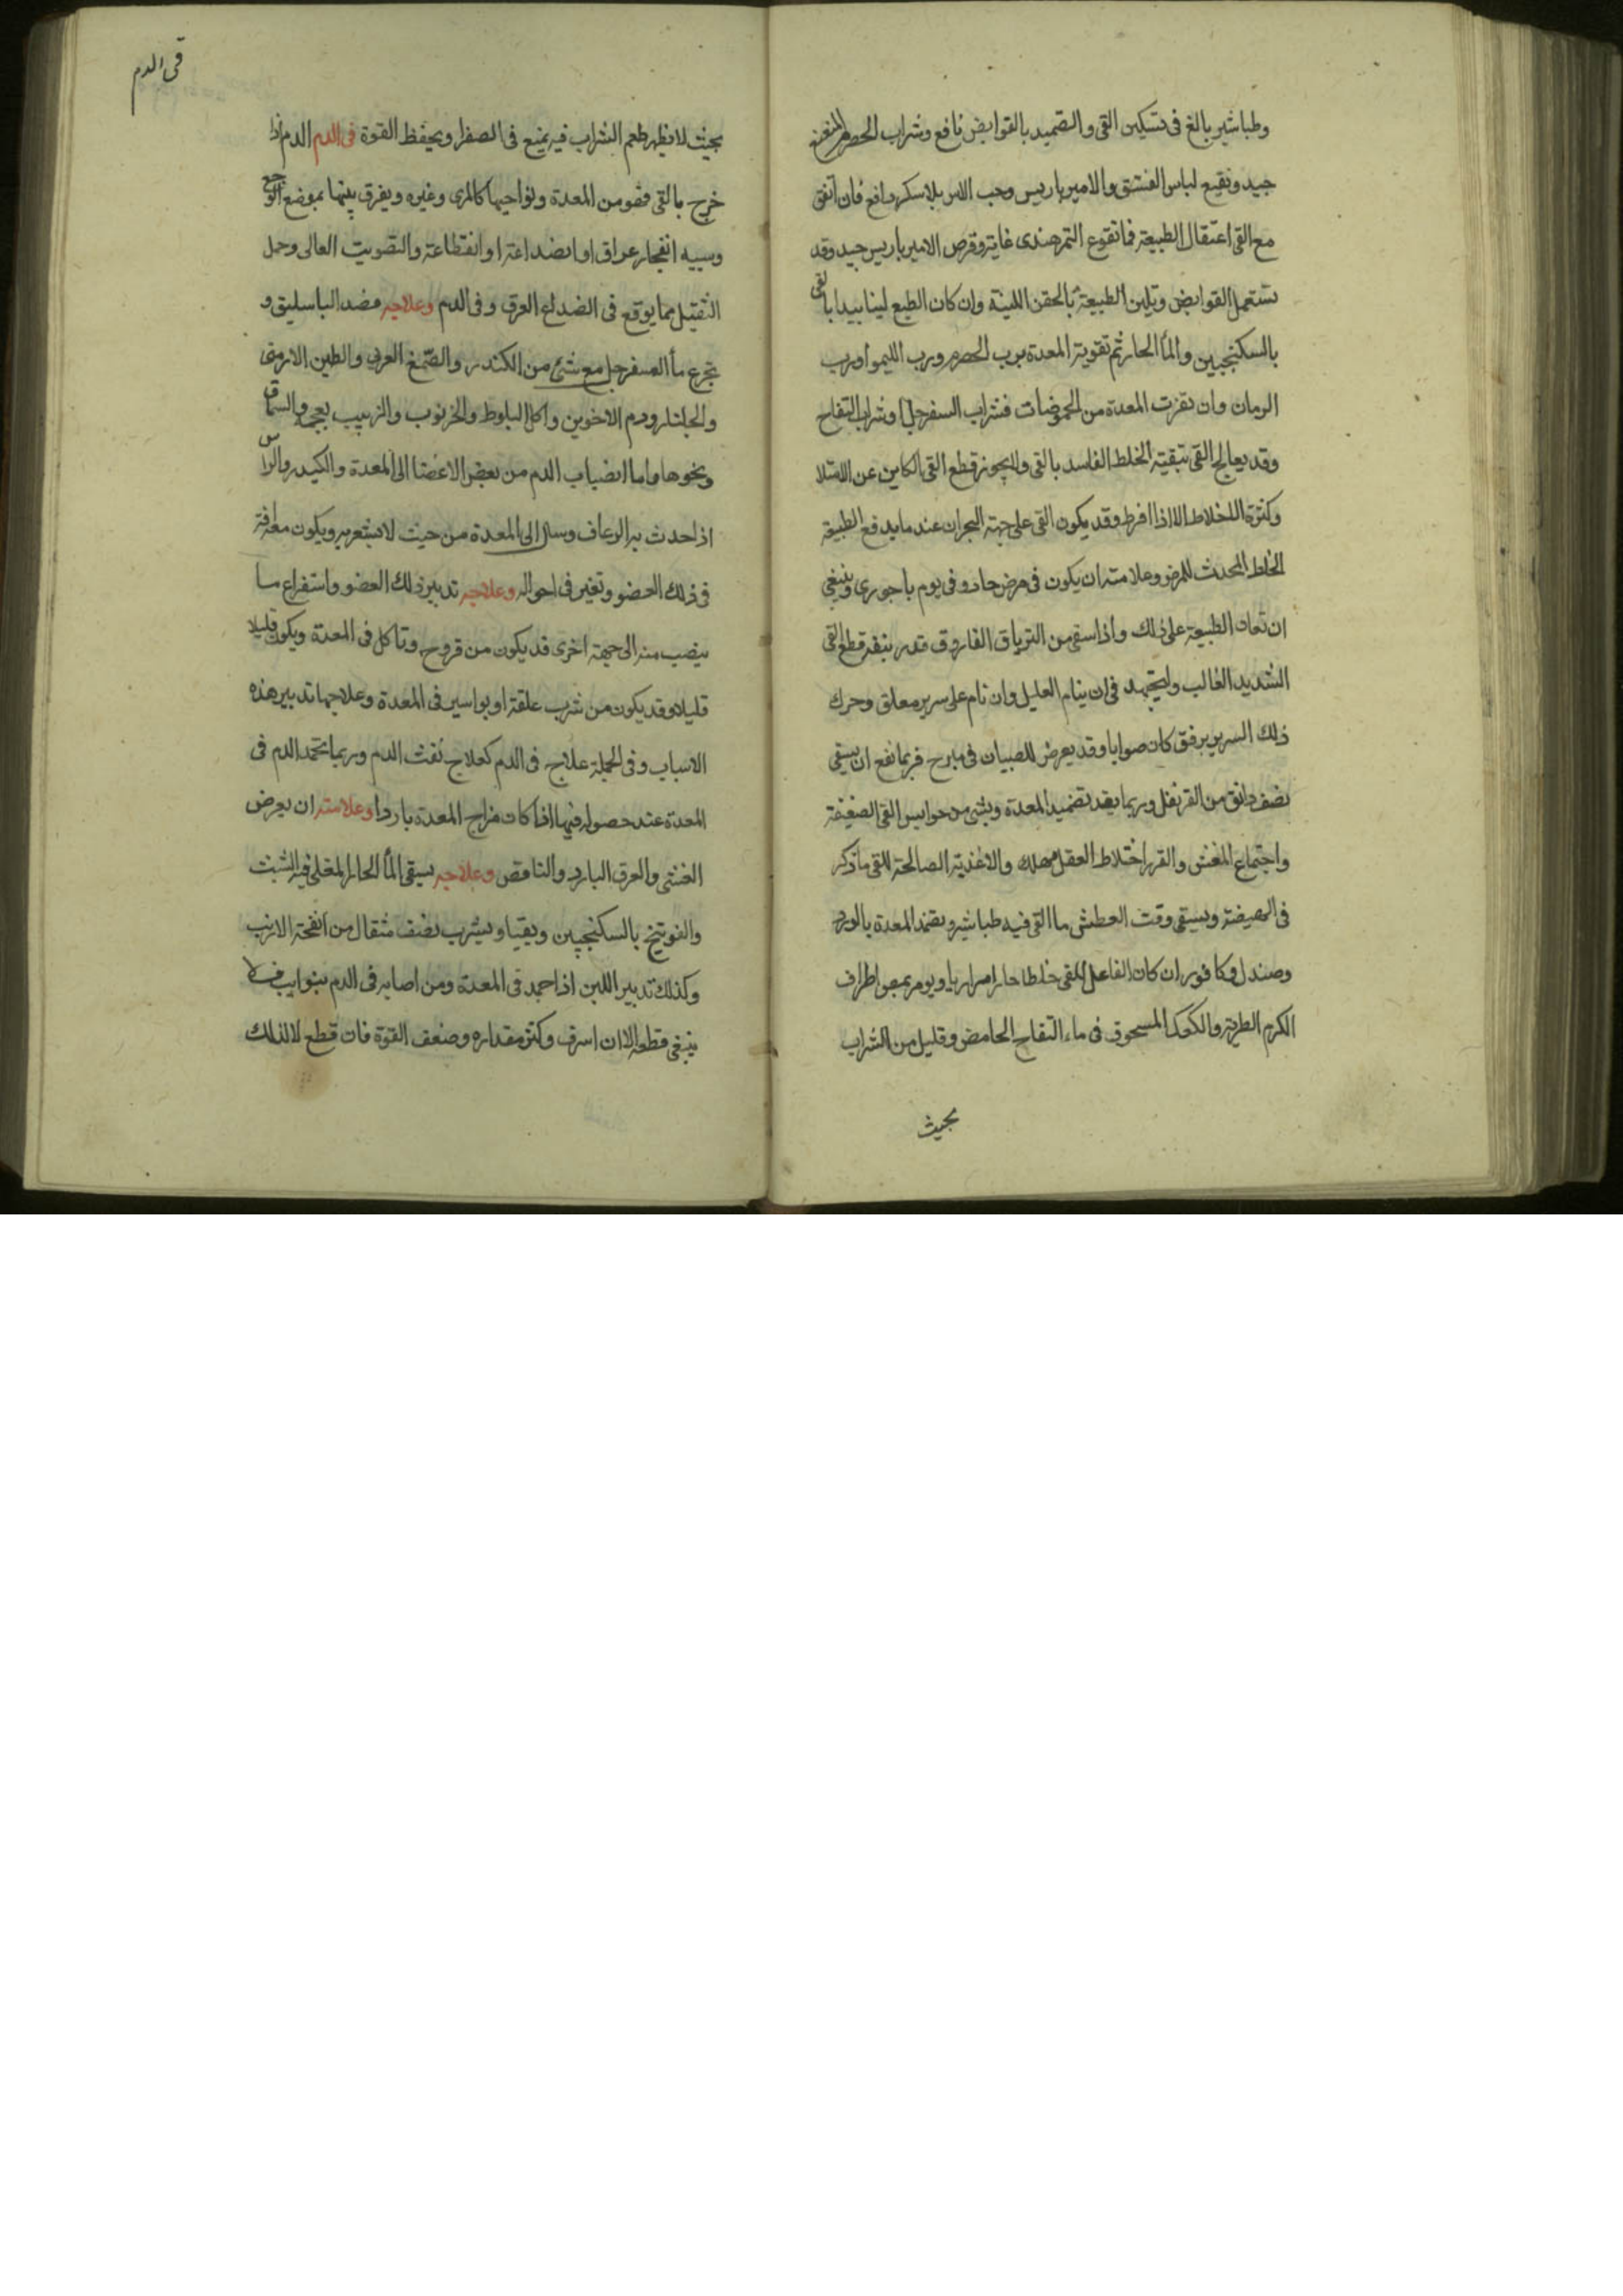 وطباشير بالغ فى تسكين القى والتضميد بالقوابض نافع وشراب الحصرم المنعنع
جيد ونقيع لباس الفستق والامير باريس وحب الاس بلا سكر دافع فان اتفق
مع القى اعتقال الطبيعة فما نقوع التمر هندى غاية وقرص الامير باريس جيد وقد
تستعمل القوابض وتلين الطبيعة بالحقن اللينة وان كان الطبع لينا يبدا بالقى
بالسكنجبين والمأ الحار ثم تقوية المعدة برب الحصرم ورب الليمو اورب
الرمان وان نفرت المعدة من الحموضات فشراب السفرجل او شراب التفاح
وقد يعالج القى بتنقية الخلط الفاسد بالقى ولا يجوز قطع القى الكاين عن الامتلا
وكثرة الاخلاط الا اذا افرط وقد يكون القى على جهة البحران عند ما يدفع الطبيعة
الخلط المحدث للمرض وعلامته ان يكون فى مرض حاد وفى يوم باحورى وينبغي
ان تعان الطبيعة على ذلك واذا سقى من الترياق الفاروق قدر بندقة قطع القى
الشديد الغالب وليجتهد فى ان ينام العليل وان نام على سرير معلق وحرك
ذلك السرير برفق كان صوابا وقد يعرض للصبيان قى مبرح فربما نفع ان يسقى
نصف دانق من القرنفل وربما يفيد تضميد المعدة وشئ من حوابس القى الضعيفة
واجتماع المغس والقى واختلاط العقل مهلك والاغذية الصالحة للقى ما ذكر
فى الهيضة ويسقى وقت العطش ما القى فيه طباشير ويضمد المعدة بالورد
وصندل وكافور ان كان الفاعل للقى خلطا حارا مراريا ويومر بمص اطراف
الكرم الطرية والكعك المسحوق فى ماء التفاح الحامض وقليل من الشراب
بحيث
قى الدم
بحيث لا يظهر طعم الشراب فيه يمنع فى الصفرا ويحفظ القوة قى الدم الدم اذا
خرج بالقى فهو من المعدة ونواحيها كالمرى وغيره ويفرق بينها بموضع الوجع
وسببه انفجار عرق او انصداعه او انقطاعه والتصويت العالى وحمل
الثقيل مما يوقع فى انصداع العرق وقى الدم وعلاجه فصد الباسليق و
تجرع مأ السفرجل مع شئ من الكندر والصمغ العربي والطين الارمنى
والجلنار ودم الاخوين واكل البلوط والخرنوب والزبيب بعجمه والسماق
ونحوها واما انصباب الدم من بعض الاعضا الى المعدة والكبد والراس
اذا حدث به الرعاف وسال الى المعدة من حيث لا يشعر به ويكون معه افة
فى ذلك العضو وتغير فى احواله وعلاجه تدبير ذلك العضو واستفراع ما
ينصب منه الى جهة اخرى قد يكون من قروح وتاكل فى المعدة ويكون قليلا
قليلا وقد يكون من شرب علقة او بواسير فى المعدة وعلاجها تدبير هذه
الاسباب وفى الجملة علاج قى الدم كعلاج نفث الدم وربما يجمد الدم فى
المعدة عند حصوله فيها اذا كان مزاج المعدة باردا وعلامته ان يعرض
الغشى والعرق البارد والنافض وعلاجه يسقى المأ الحار المغلى فيه الشبت
والفوتنج بالسكنجبين ويقيا ويشرب نصف مثقال من انفحة الارنب
وكذلك تدبير اللبن اذا جمد فى المعدة ومن اصابه قى الدم بنوايب فلا
ينبغى قطعه الا ان اسرف وكثر مقداره وضعف القوة فان قطع لا لذلك